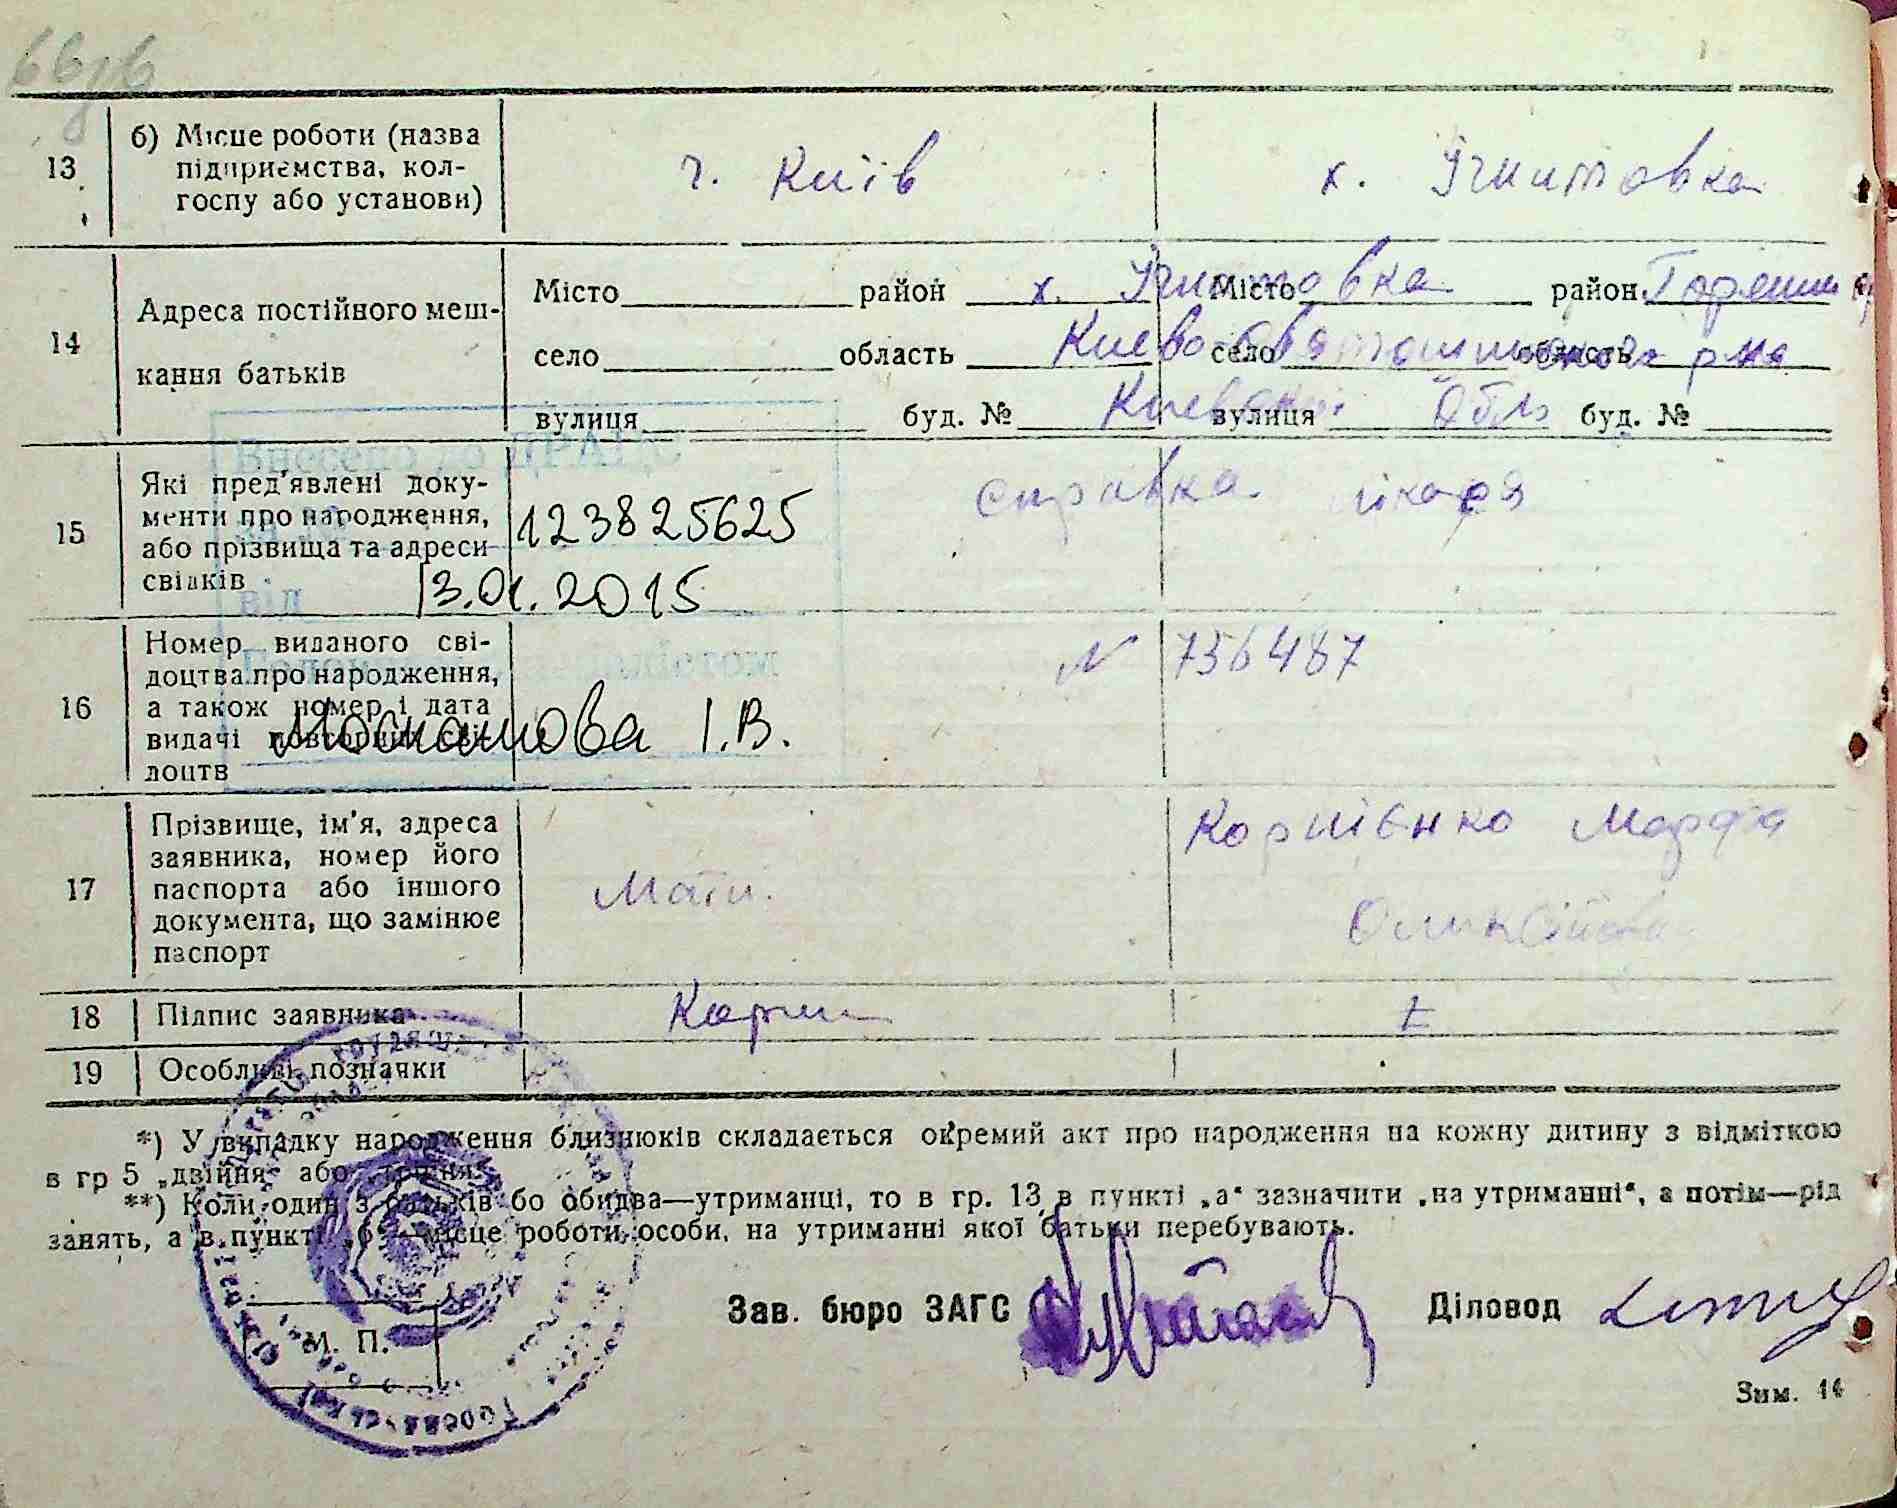 13 б) Місце роботи (назва
підприємства, кол-
госпу або установи)
г. Київ
х. Ігнитовка
14 Адреса постійного меш-
кання батьків
Місто район
село область
вулиця буд. №
Місто район
село область
вулиця буд. №
х. Ігнитовка
Киево-Святошинского р-на
Киевской Обл
Внесено до ДРАЦС
15 Які пред'явлені доку-
менти про народження,
або прізвища та адреси
свідків
від
123825625
13.01.2015
справка лікаря
16 Номер виданого сві-
доцтва про народження,
а також номер і дата
видачі повторних сві-
доцтв
І.В.
N 756487
17 Прізвище, ім'я, адреса
заявника, номер його
паспорта або іншого
документа, що замінює
паспорт
Мати.
Корниенко Марфа
18 Підпис заявника
19 Особливі позначки
*) У випадку народження близнюків складається окремий акт про народження на кожну дитину з відміткою
в гр 5 „двійня" або „трійня".
**) Коли один з батьків бо обидва—утриманці, то в гр. 13 в пункті „а" зазначити „на утриманні", а потім—рід
занять, а в пункті „б"—місце роботи особи, на утриманні якої батьки перебувають.
М. П.
Зав. бюро ЗАГС
Діловод
Зим. 14